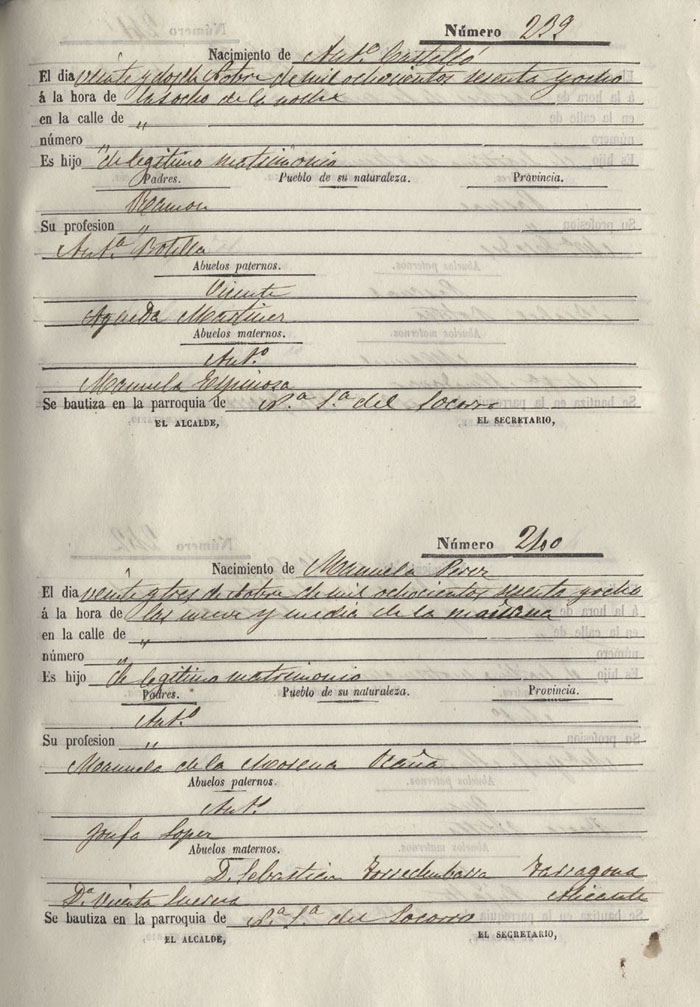 Número 239
Nacimiento de Ant.º Castelló
El dia veinte y dos de 8obre de mil ochocientos sesenta y ocho
á la hora de las ocho de la noche
en la calle de "
número "
Es hijo de legitimo matrimonio
Padres. Pueblo de su naturaleza. Provincia.
Ramon
Su profesion "
Ant.ª Botella
Abuelos paternos.
Vicente
Agueda Martinez
Abuelos maternos.
Ant.º
Manuela Espinosa
Se bautiza en la parroquia de N.ª S.ª del Socorro
EL ALCALDE, EL SECRETARIO,
Número 240
Nacimiento de Manuela Perez
El dia veinte y tres de 8obre de mil ochocientos sesenta y ocho
á la hora de las nueve y media de la mañana
en la calle de "
número "
Es hijo de legitimo matrimonio
Padres. Pueblo de su naturaleza. Provincia.
Ant.º
Su profesion "
Manuela de la Morena Ocaña
Abuelos paternos.
Ant.º
Josefa Lopez
Abuelos maternos.
D. Sebastian Torredembarra Tarragona
D.ª Vicenta Alicante
Se bautiza en la parroquia de N.ª S.ª del Socorro
EL ALCALDE, EL SECRETARIO,